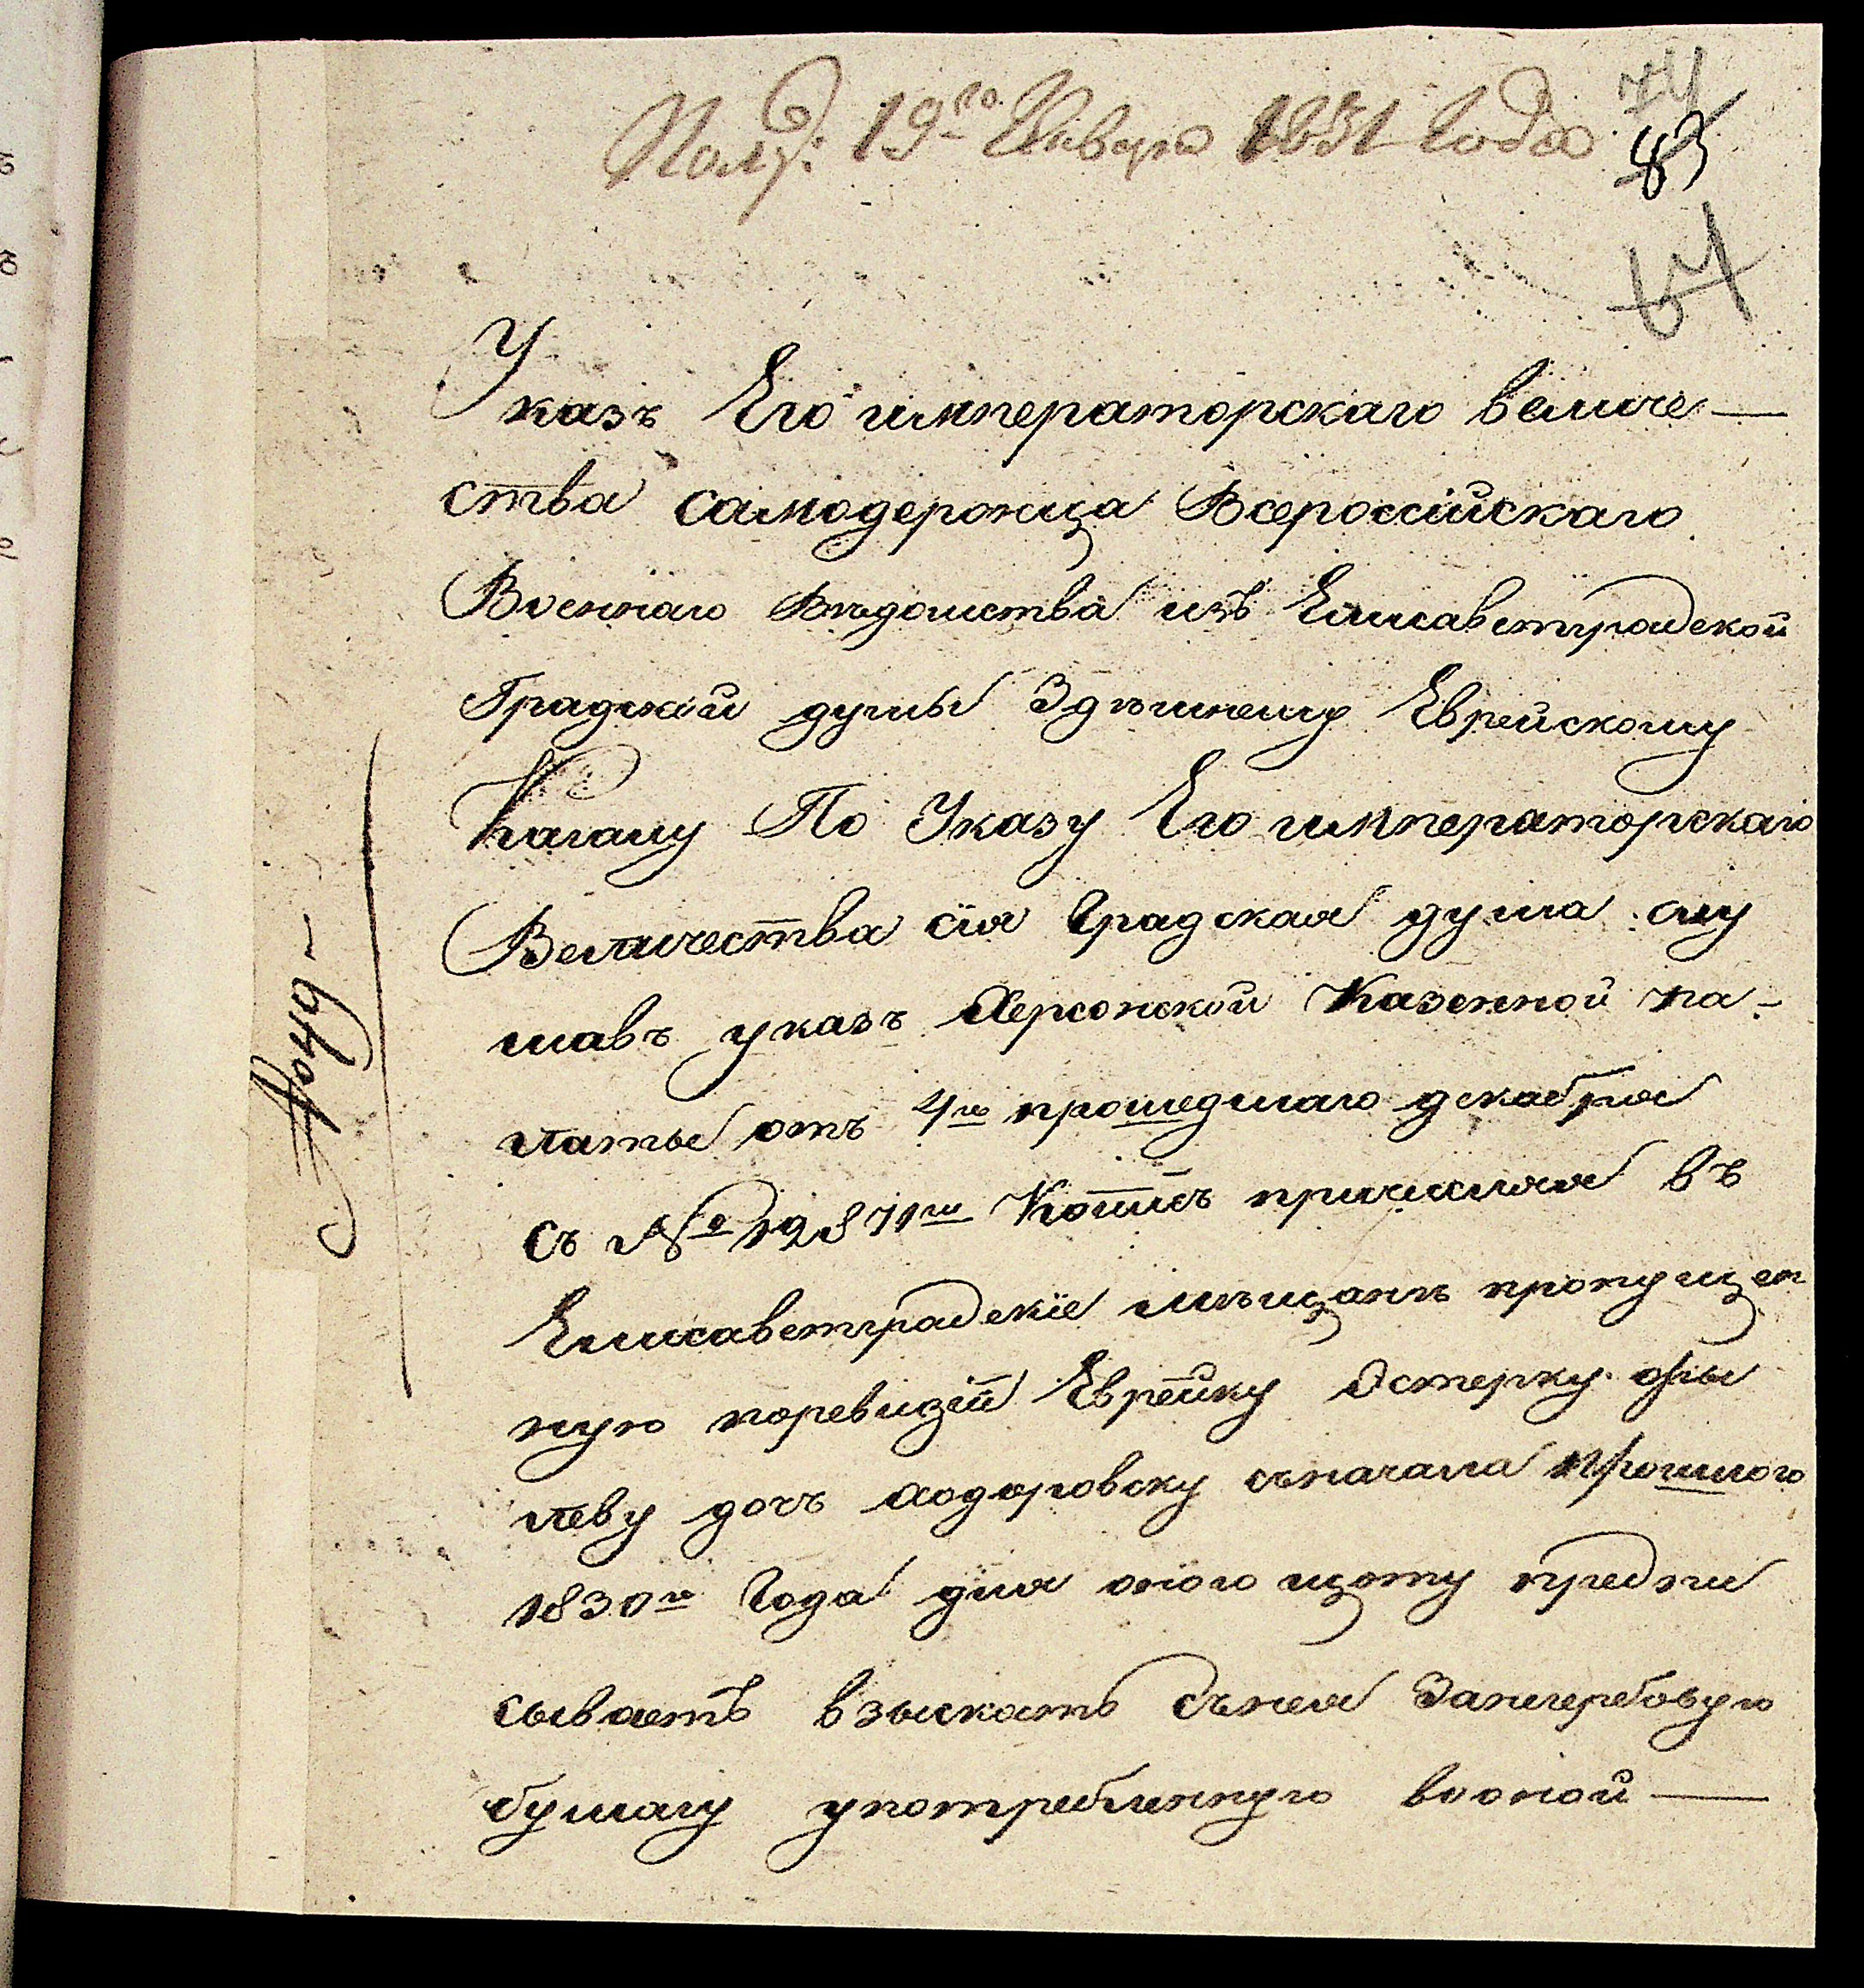 Полу: 19го Января 1831 года
74
83
64
Указъ Его императорскаго величе—
ства самодержца Всероссійскаго
Военнаго Вѣдомства изъ Елисаветградской
Градской думы Здѣшнему Еврейскому
Кагалу По Указу Его императорскаго
Величества сія Градская дума слу
шавъ указъ Херсонской Казенной па-
латы отъ 4го прошедшаго декабря
съ № 12871м Коимъ причисляя въ
Елисаветградскіе мѣщане пропущен
ную поревизіи Еврейку Эстерку
леву дочь съначала прошлого
1830го Года для оного щоту предпи
сываетъ взыскать сънея Загербовую
бумагу употребленную вооной —